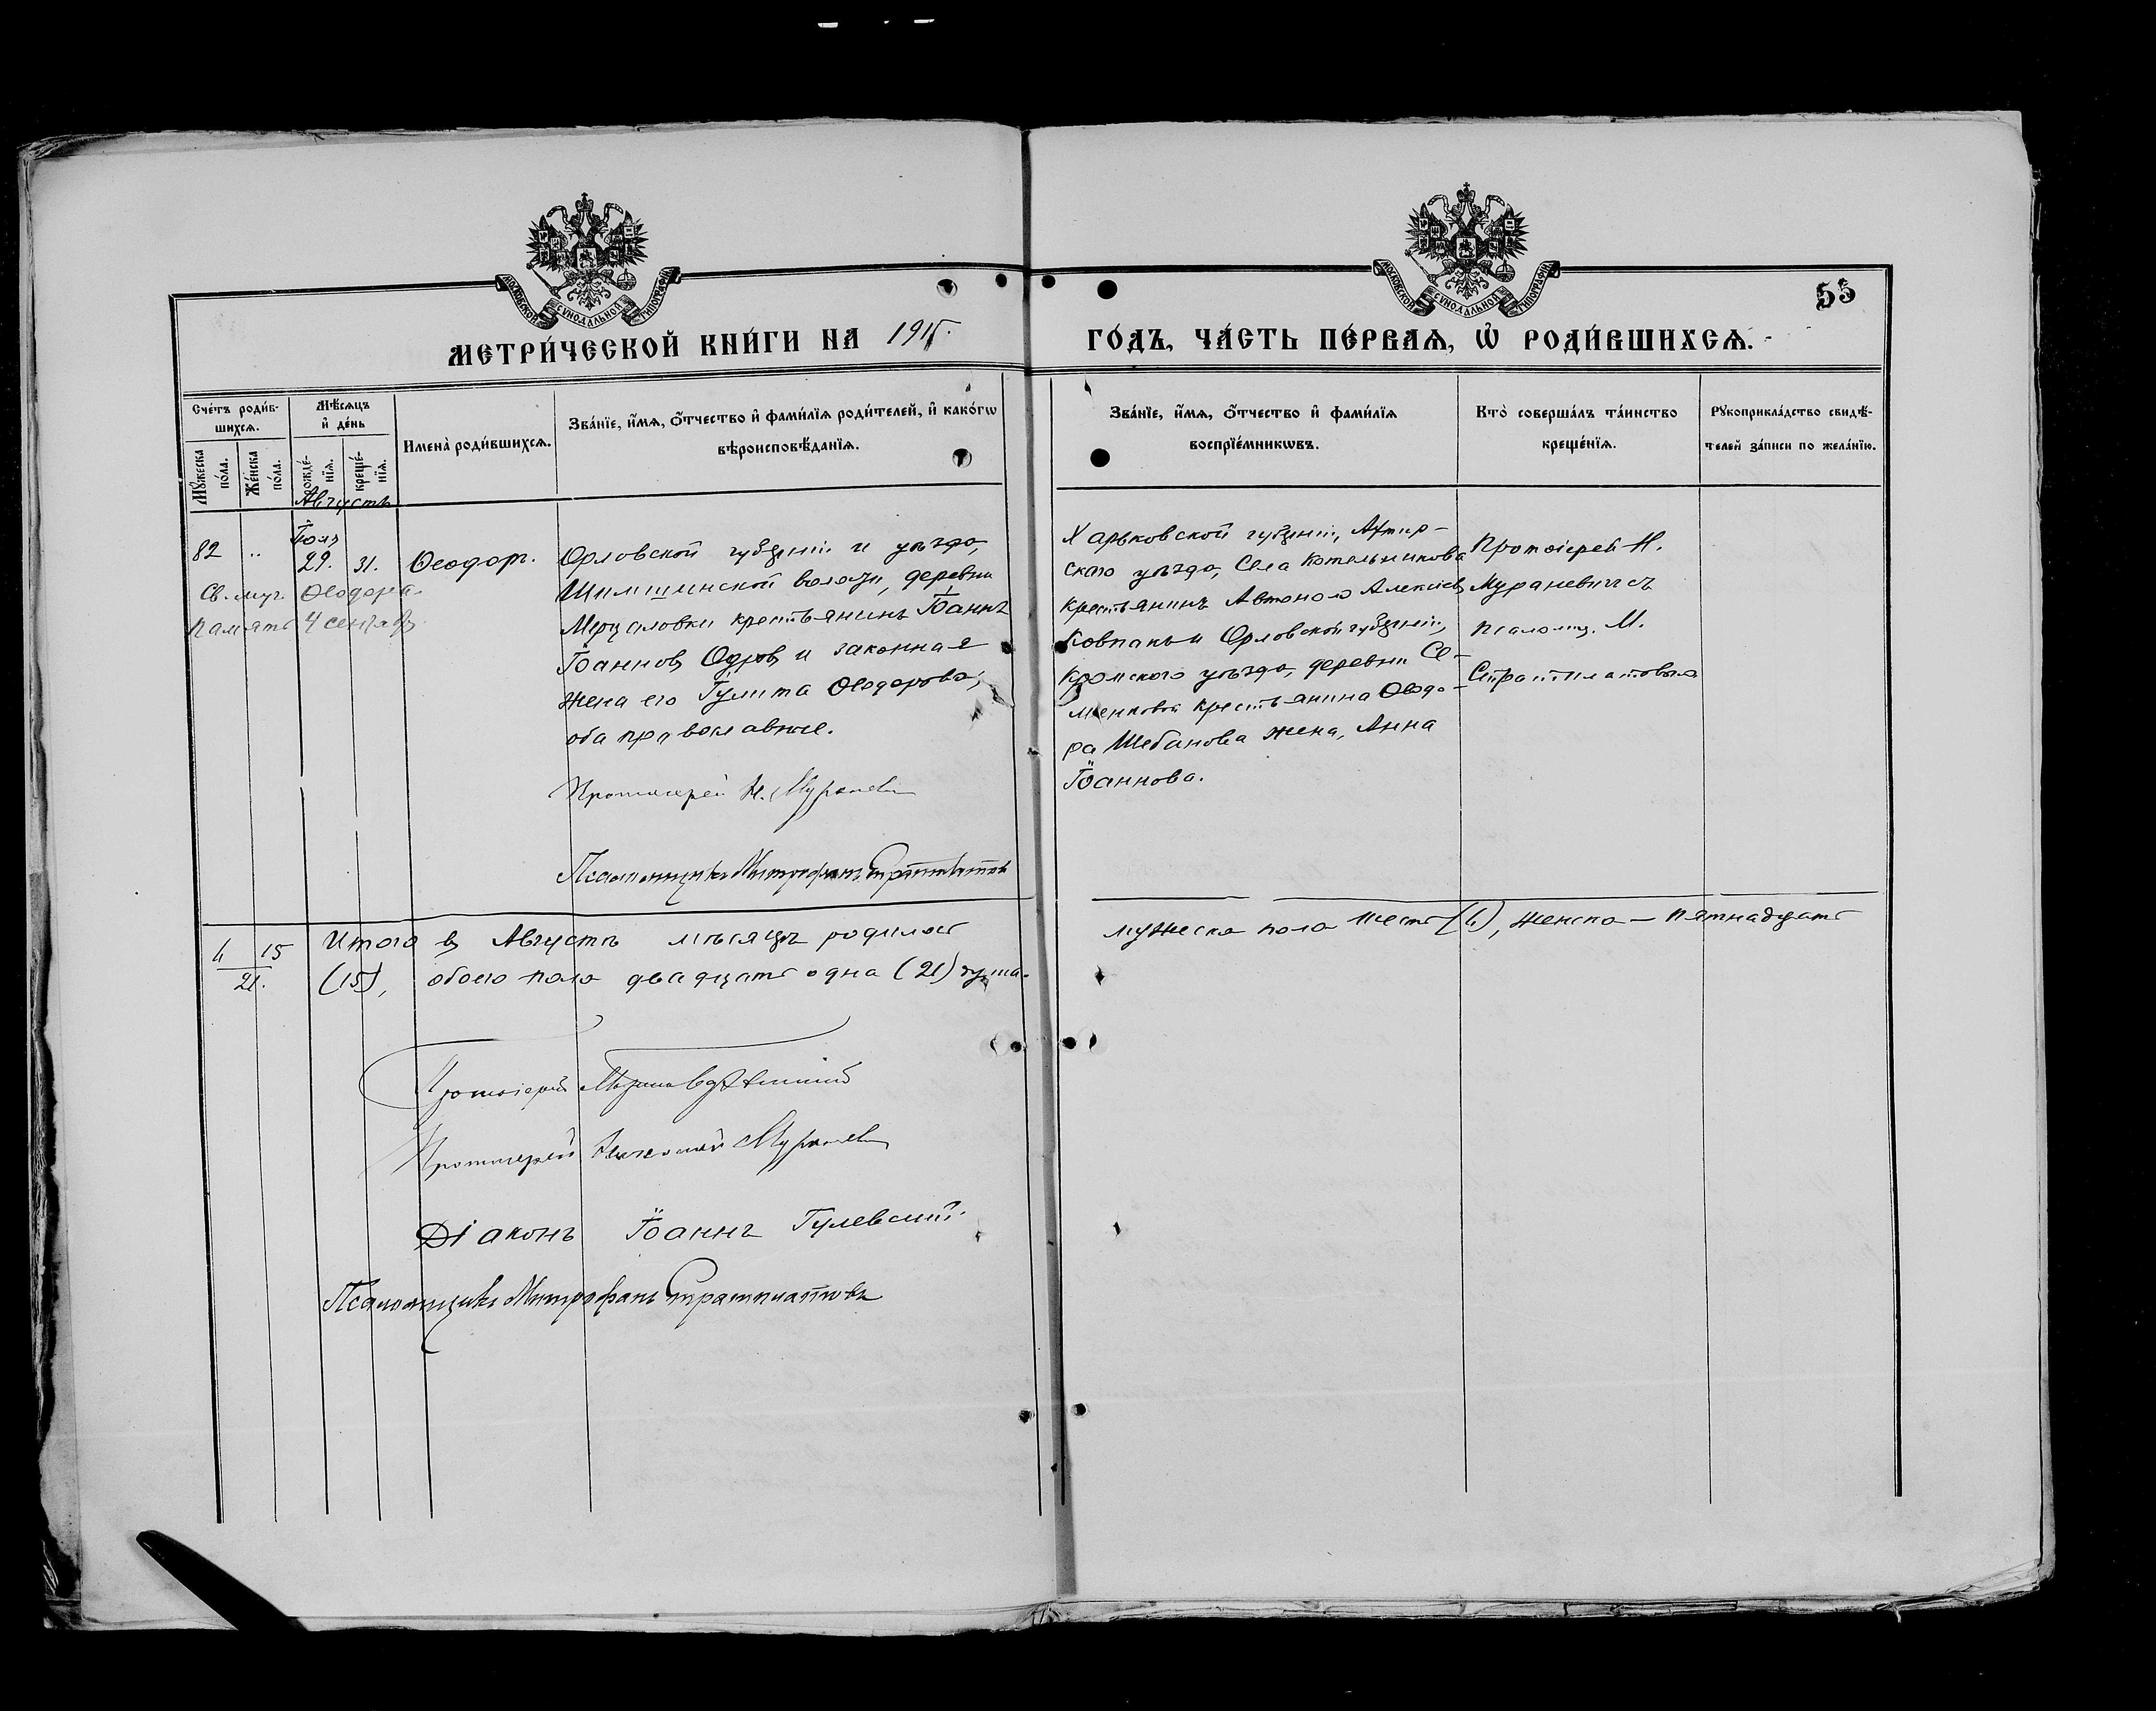 МОСКОВСКОЙ СѴНОДАЛЬНОЙ ТИПОГРАФІИ
МОСКОВСКОЙ СѴНОДАЛЬНОЙ ТИПОГРАФІИ
55
МЕТРИ́ЧЕСКОЙ КНИ́ГИ НА 1915.
ГО́ДЪ, ЧА́СТЬ ПЕ́РВАѦ, Ѡ҆ РОДИ́ВШИХСѦ.
Сче́тъ роди́в-
шихсѧ.
Мꙋ́жеска по́ла.
Же́нска по́ла.
Мѣ́сѧцъ
и҆ де́нь
рожде́-
нїѧ.
креще́-
нїѧ.
Имена̀ роди́вшихсѧ.
Зва́нїе, и҆́мѧ, ѻ҆́тчество и҆ фами́лїѧ роди́телей, и҆ како́гѡ
вѣроисповѣ́данїѧ.
Зва́нїе, и҆́мѧ, ѻ҆́тчество и҆ фами́лїѧ
воспрїе́мникѡвъ.
Кто̀ соверша́лъ та́инство
креще́нїѧ.
Рꙋкоприкла́дство свидѣ́-
телей за́писи по жела́нїю.
Августъ
82 „ Іюля
29. 31. Ѳеодоръ.
Св. муч. Ѳеодора
Память 4 сентяб.
Орловской губерніи и уѣзда,
волости, деревни
крестьянинъ Іоаннъ
Іоанновъ и законная
жена его Ѳеодорова,
оба православные.
Протоіерей Н. Мураневичъ
Псаломщикъ Митрофанъ Стратилатовъ
Харьковской губерніи, Ахтыр-
скаго уѣзда, села Котельникова
крестьянинъ Автономъ Алексіевъ
Ковпакъ и Орловской губерніи,
Кромского уѣзда, деревни Се-
менковой крестьянина Ѳеодо-
ра Шебанова жена, Анна
Іоаннова.
Протоіерей Н.
Мураневичъ съ
псаломщ. М.
Стратилатовымъ
6 15
21.
Итого въ Августѣ мѣсяцѣ родилось
мужеска пола шесть (6), женска — пятнадцать
(15), обоего пола двадцать одна (21) душа.
Протоіерей
Протоіерей Николай Мураневичъ
Діаконъ Іоаннъ Гулевскій.
Псаломщикъ Митрофанъ Стратилатовъ